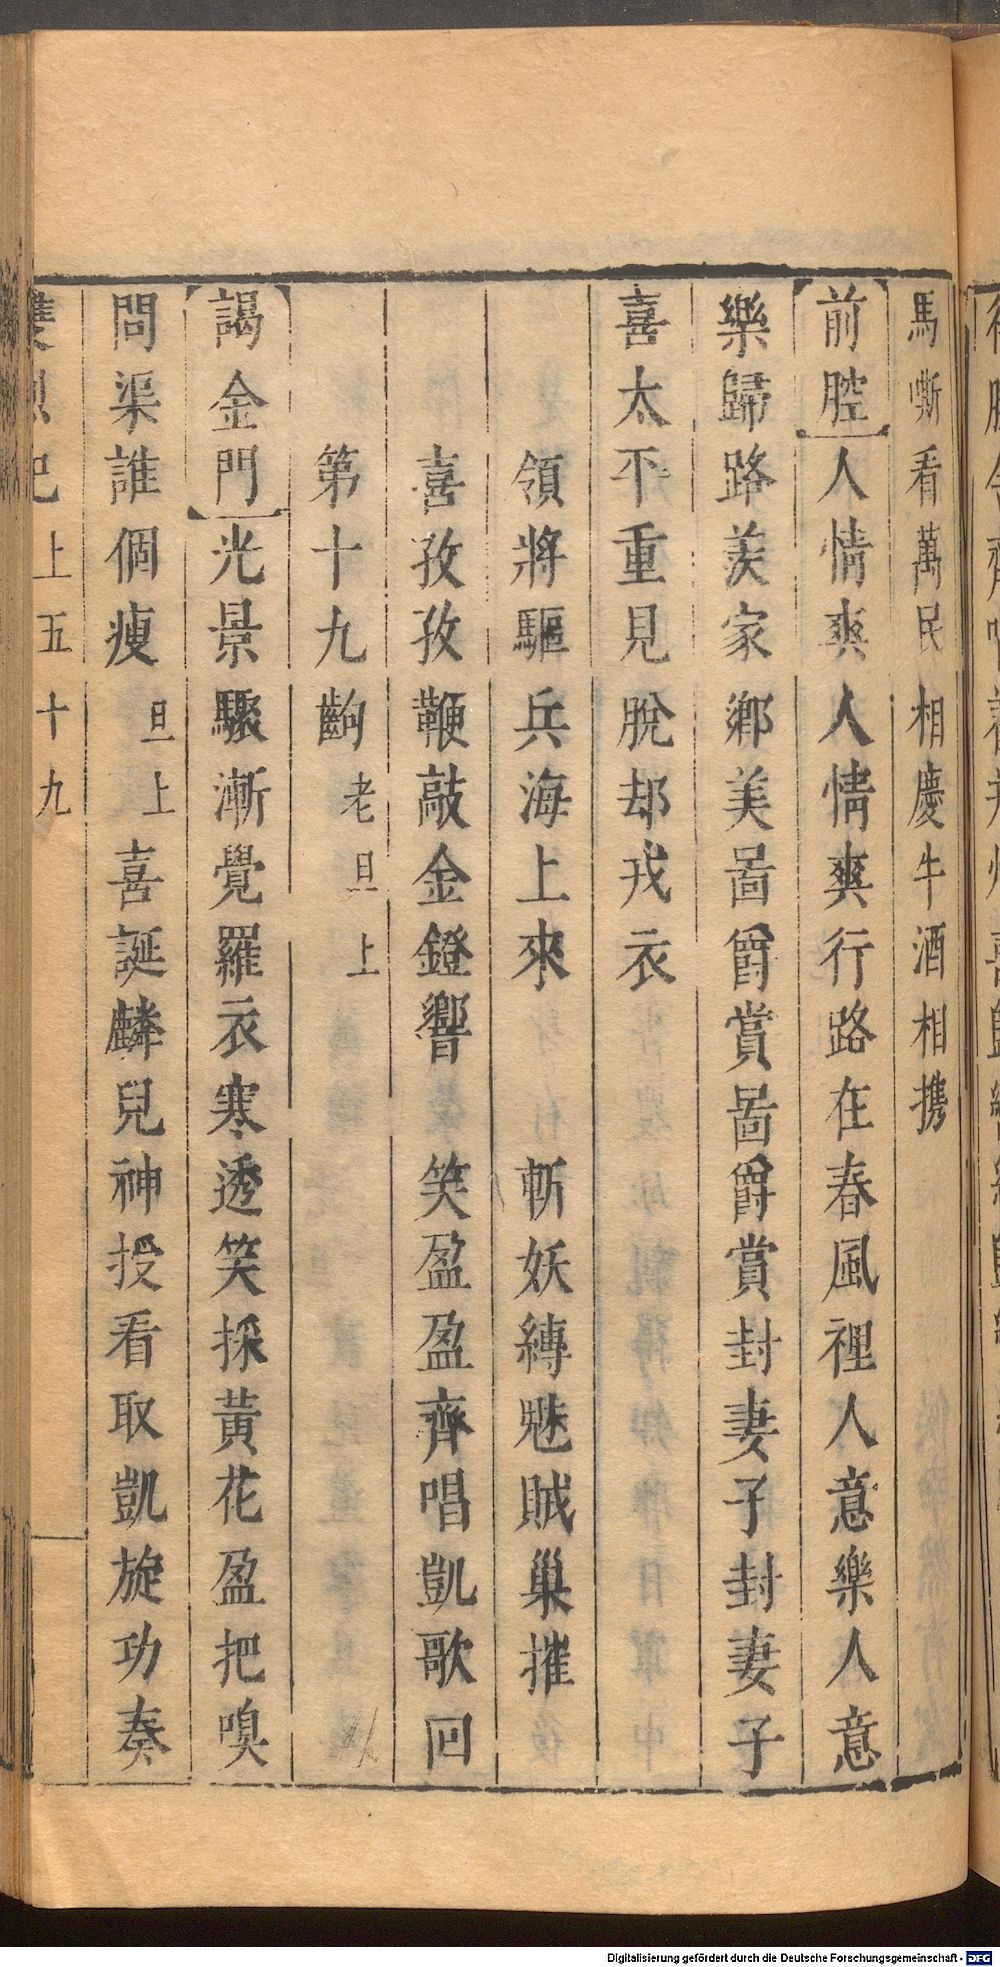 馬嘶看萬民相慶牛酒相携
前腔人情爽人情爽行路在春風裡人意樂人意
樂歸路羨家鄉美啚爵賞啚爵賞封妻子封妻子
喜太平重見脫却戎衣
領將驅兵海上來　斬妖縛魅賊巢摧
喜孜孜鞭敲金鐙響　笑盈盈齊唱凱歌回
第十九齣　老旦上
謁金門光景驟漸覺羅衣寒透笑採黃花盈把嗅
問渠誰個瘦　旦上　喜誕麟兒神授看取凱旋功奏
雙烈記上五十九
Digitalisierung gefördert durch die Deutsche Forschungsgemeinschaft - DFG